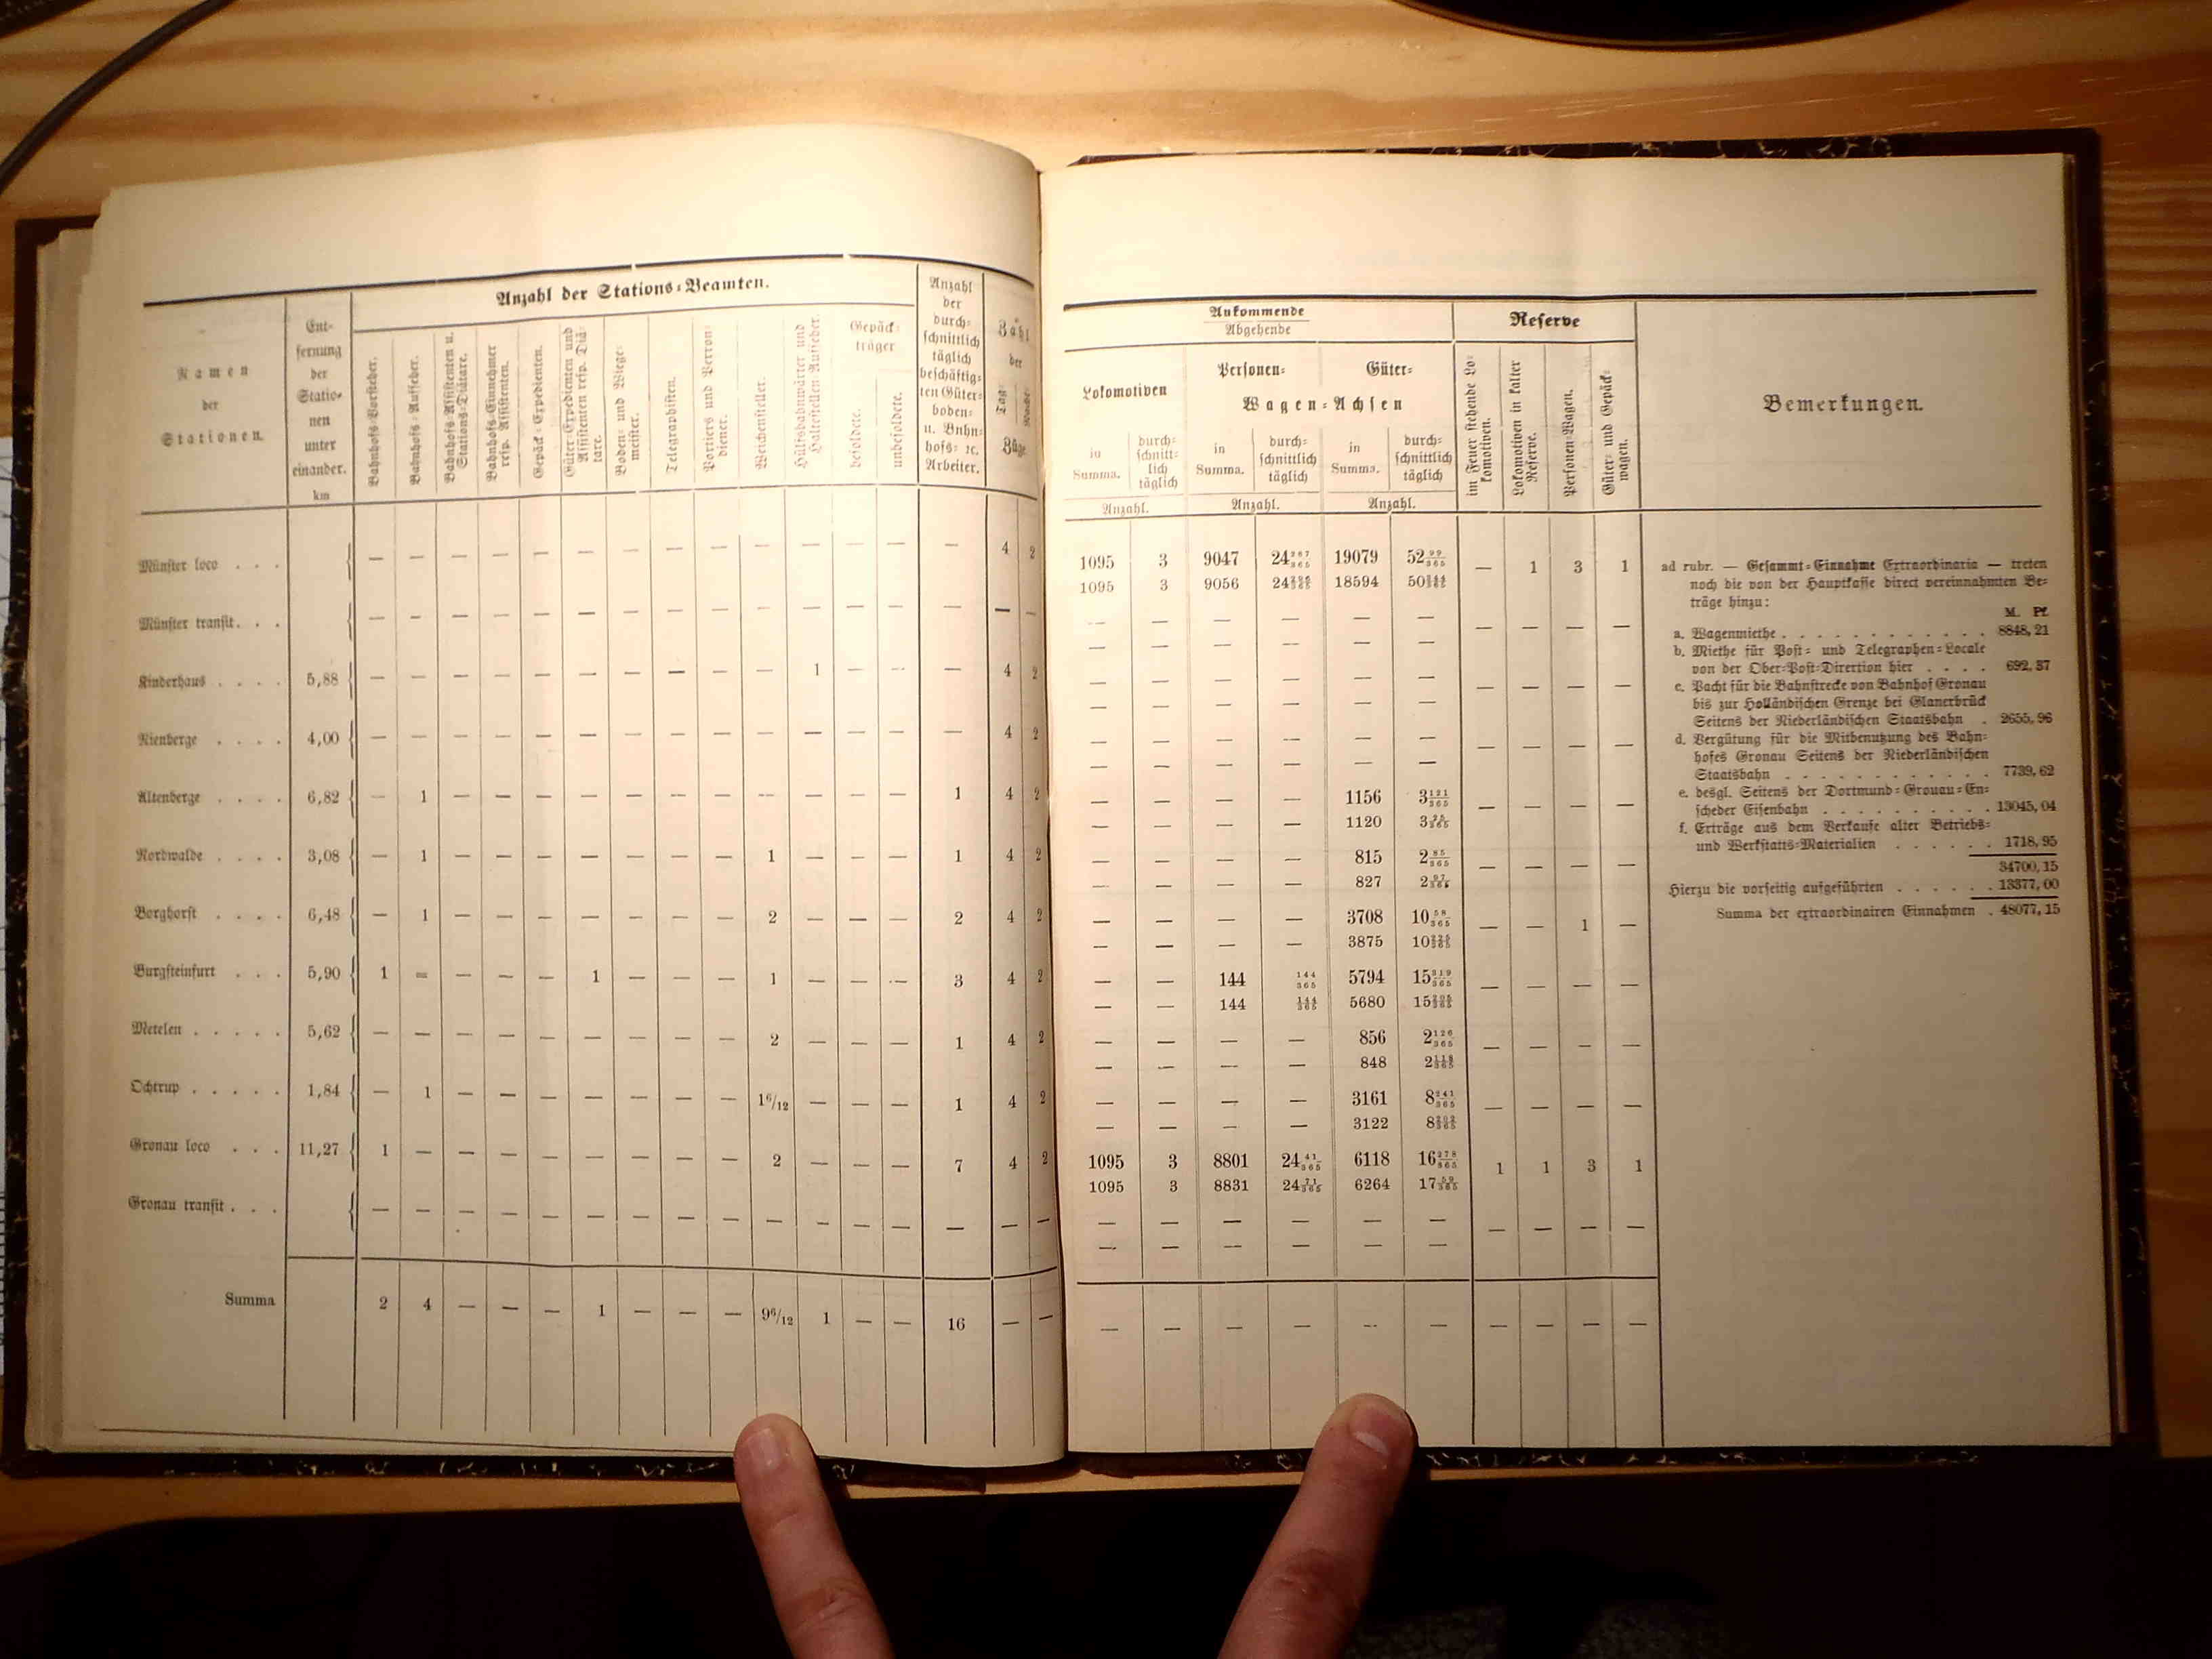 Anzahl der Stations-Beamten.
Namen
der
Stationen.
Ent-
fernung
der
Statio-
nen
unter
einander.
km
Bahnhofs-Vorsteher.
Bahnhofs-Aufseher.
Bahnhofs-Assistenten u.
Stations-Diätare.
Bahnhofs-Einnehmer
resp. Assistenten.
Gepäck-Expedienten.
Güter-Expedienten und
Assistenten resp. Diä-
tare.
Boden- und Wiege-
meister.
Telegraphisten.
Portiers und Perron-
diener.
Weichensteller.
Hülfsbahnwärter und
Haltestellen-Aufseher.
Gepäck-
träger
besoldete.
unbesoldete.
Anzahl
der
durch-
schnittlich
täglich
beschäftig-
ten Güter-
boden-
u. Bahn-
hofs- ꝛc.
Arbeiter.
Zahl
der
Tag-
Züge
Münster loco . . . — — — — — — — — — — — — — — 4 2
Münster transit. . . — — — — — — — — — — — — — — — —
Kinderhaus . . . . 5,88 — — — — — — — — — — 1 — — — 4 2
Nienberge . . . . 4,00 — — — — — — — — — — — — — — 4 2
Altenberge . . . . 6,82 — 1 — — — — — — — — — — — 1 4 2
Nordwalde . . . . 3,08 — 1 — — — — — — — 1 — — — 1 4 2
Borghorst . . . . 6,48 — 1 — — — — — — — 2 — — — 2 4 2
Burgsteinfurt . . . 5,90 1 — — — — 1 — — — 1 — — — 3 4 2
Metelen . . . . . 5,62 — — — — — — — — — 2 — — — 1 4 2
Ochtrup . . . . . 1,84 — 1 — — — — — — — 1 6/12 — — — 1 4 2
Gronau loco . . . 11,27 1 — — — — — — — — 2 — — — 7 4 2
Gronau transit. . . — — — — — — — — — — — — — — — —
Summa 2 4 — — — 1 — — — 9 6/12 1 — — 16 — —
Ankommende
Abgehende
Reserve
Lokomotiven
Personen-
Güter-
Wagen-Achsen
in
Summa.
durch-
schnitt-
lich
täglich
in
Summa.
durch-
schnittlich
täglich
in
Summa.
durch-
schnittlich
täglich
Anzahl.
Anzahl.
Anzahl.
im Feuer stehende Lo-
komotiven.
Lokomotiven in kalter
Reserve.
Personen-Wagen.
Güter- und Gepäck-
wagen.
Bemerkungen.
1095 3 9047 24 267/365 19079 52 99/365 — 1 3 1
1095 3 9056 24 18594 50 344/365
— — — — — —
— — — — — — — — — —
— — — — — —
— — — — — — — — — —
— — — — — —
— — — — — — — — — —
— — — — 1156 3 121/365
— — — — 1120 3 25/365 — — — —
— — — — 815 2 85/365
— — — — 827 2 97/365 — — — —
— — — — 3708 10 58/365 — — 1 —
— — — — 3875 10 225/365
— — 144 144/365 5794 15 319/365 — — — —
— — 144 144/365 5680 15 205/365
— — — — 856 2 126/365 — — — —
— — — — 848 2 118/365
— — — — 3161 8 241/365 — — — —
— — — — 3122 8 202/365
1095 3 8801 24 41/365 6118 16 278/365 1 1 3 1
1095 3 8831 24 71/365 6264 17 59/365
— — — — — — — — — —
— — — — — —
— — — — — — — — — —
ad rubr. — Gesammt-Einnahme Extraordinaria — treten
noch die von der Hauptkasse direct vereinnahmten Be-
träge hinzu:
M. Pf.
a. Wagenmiethe . . . . . . . . . . . . 8848,21
b. Miethe für Post- und Telegraphen-Locale
von der Ober-Post-Direrction hier . . . . 692,37
c. Pacht für die Bahnstrecke von Bahnhof Gronau
bis zur Holländischen Grenze bei Glanerbrück
Seitens der Niederländischen Staatsbahn . 2655,96
d. Vergütung für die Mitbenutzung des Bahn-
hofes Gronau Seitens der Niederländischen
Staatsbahn . . . . . . . . . . . . 7739,62
e. desgl. Seitens der Dortmund-Gronau-En-
scheder Eisenbahn . . . . . . . . . . 13045,04
f. Erträge aus dem Verkaufe alter Betriebs-
und Werkstatts-Materialien . . . . . . 1718,95
34700,15
Hierzu die vorseitig aufgeführten . . . . . . 13377,00
Summa der extraordinairen Einnahmen . 48077,15